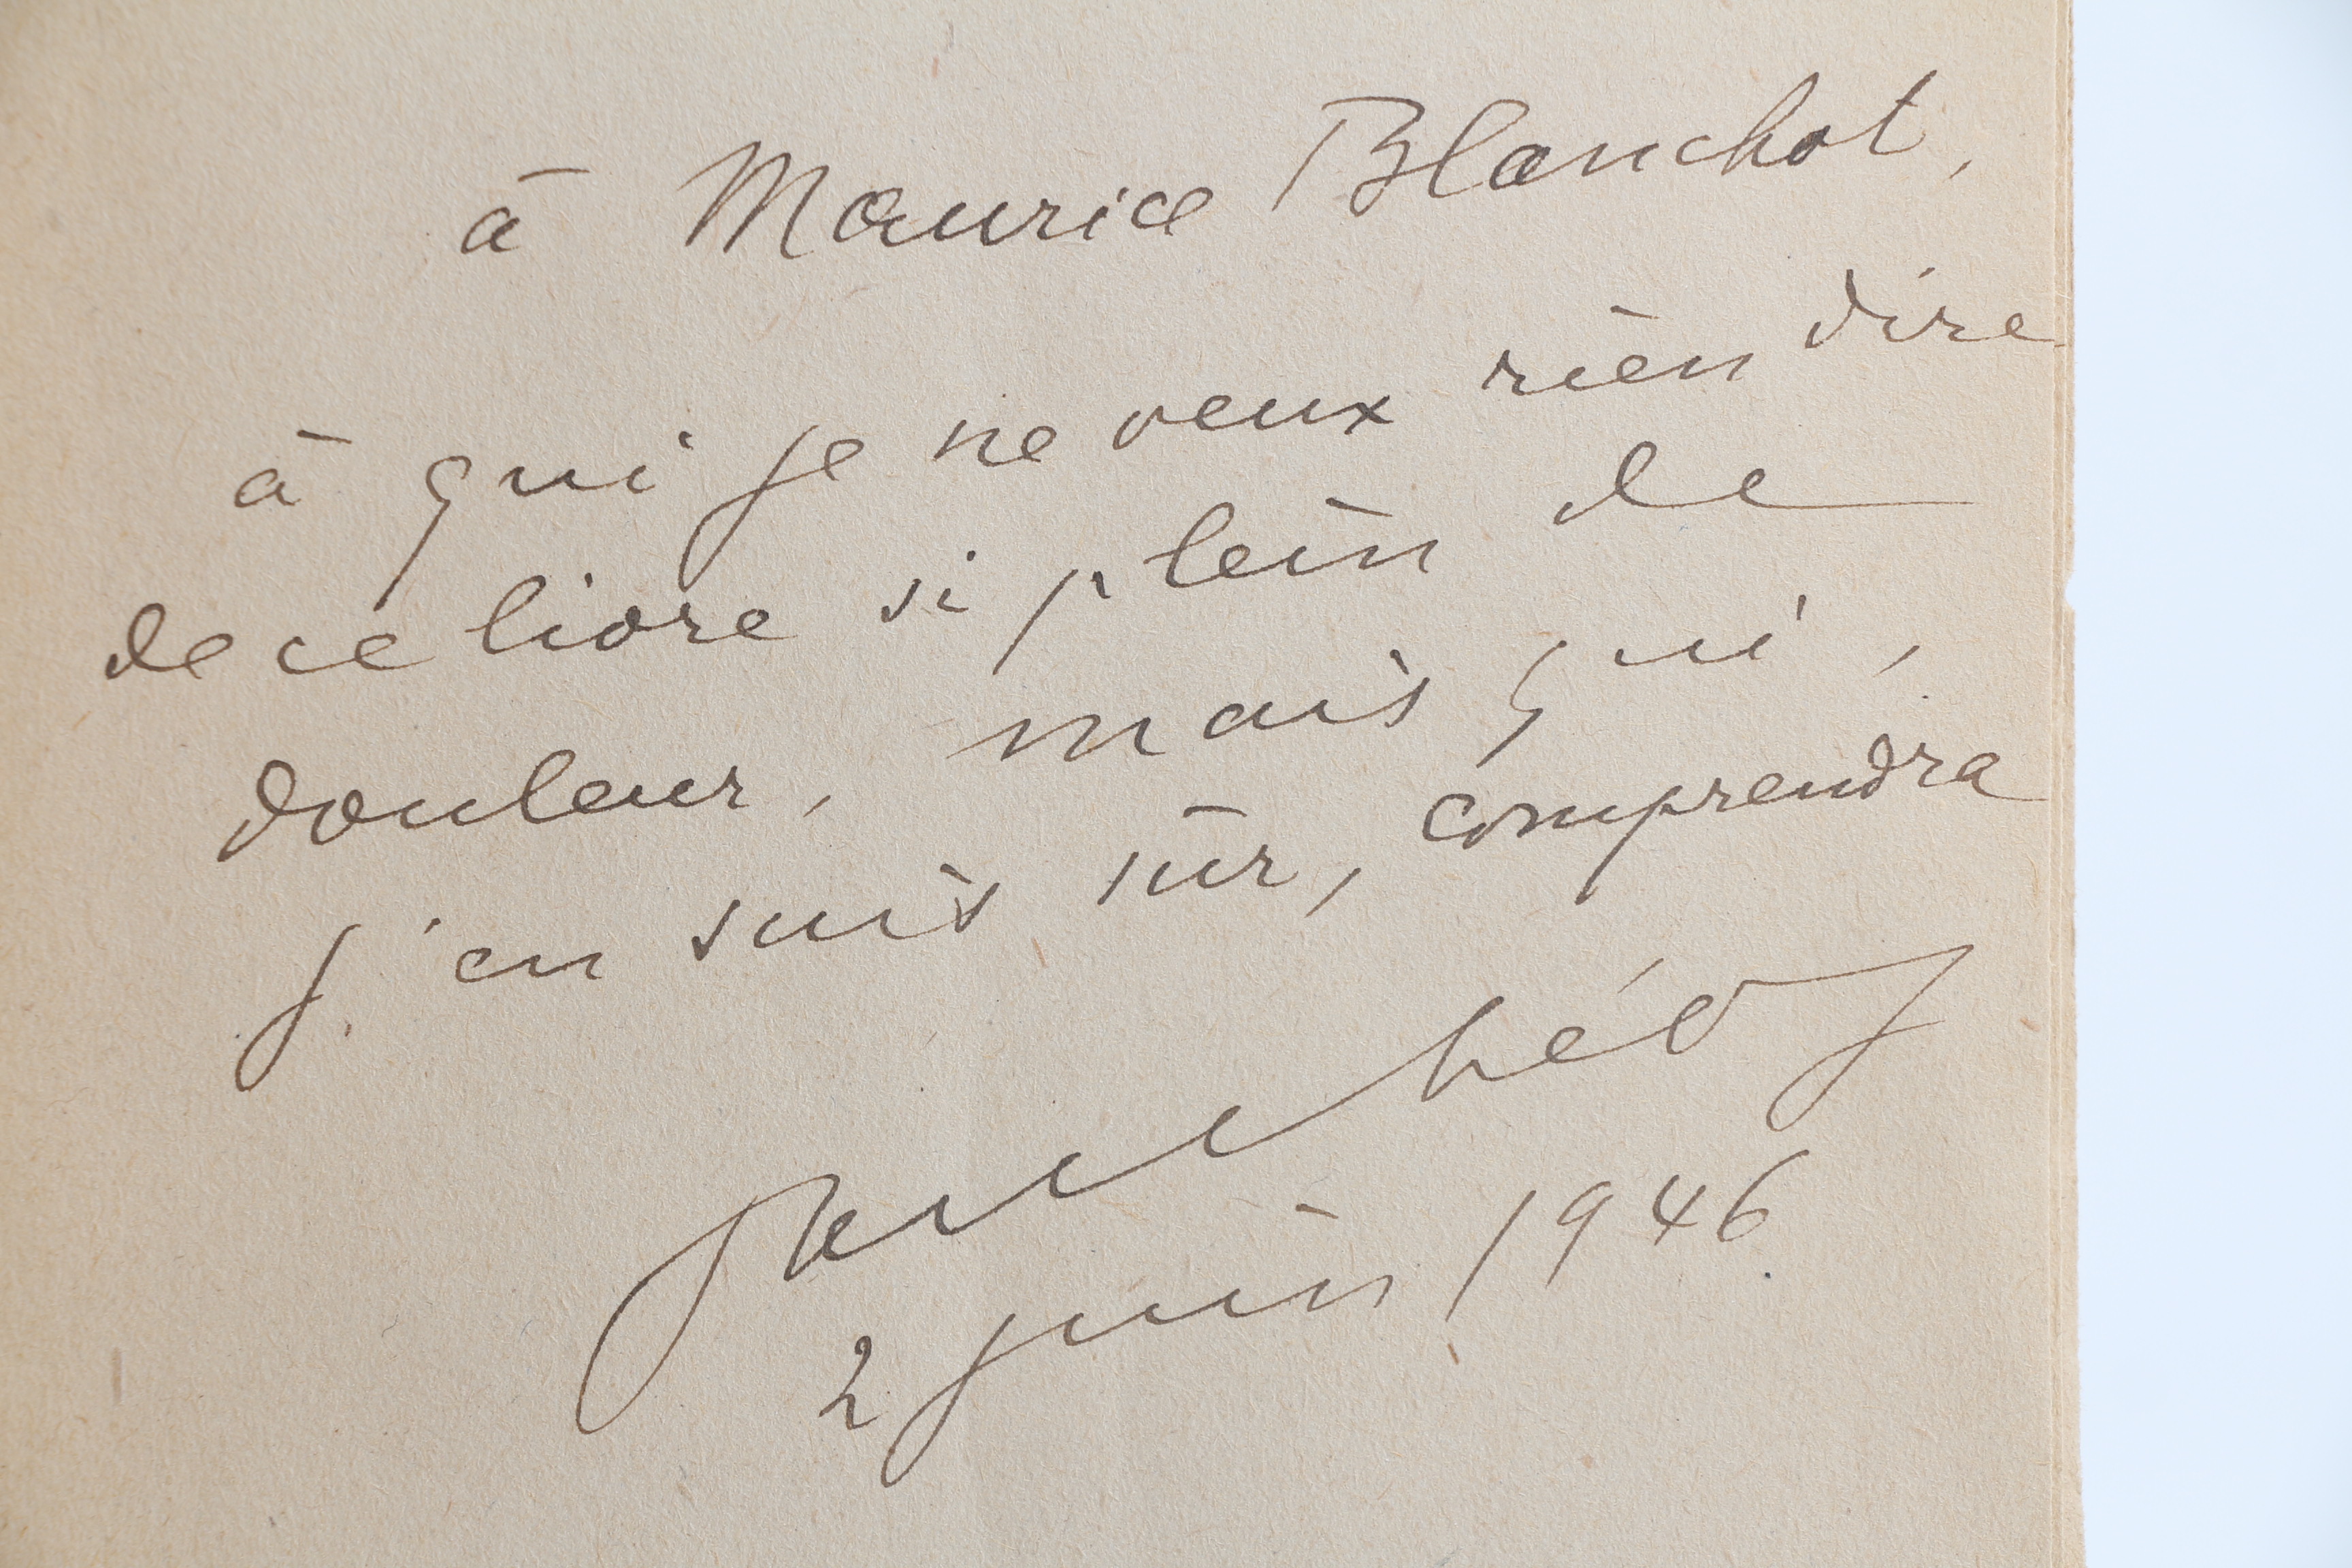 à Maurice Blanchot,
à qui je ne veux rien dire
de ce livre si plein de
douleur, mais qui,
j'en suis sûr, comprendra
2 juin 1946